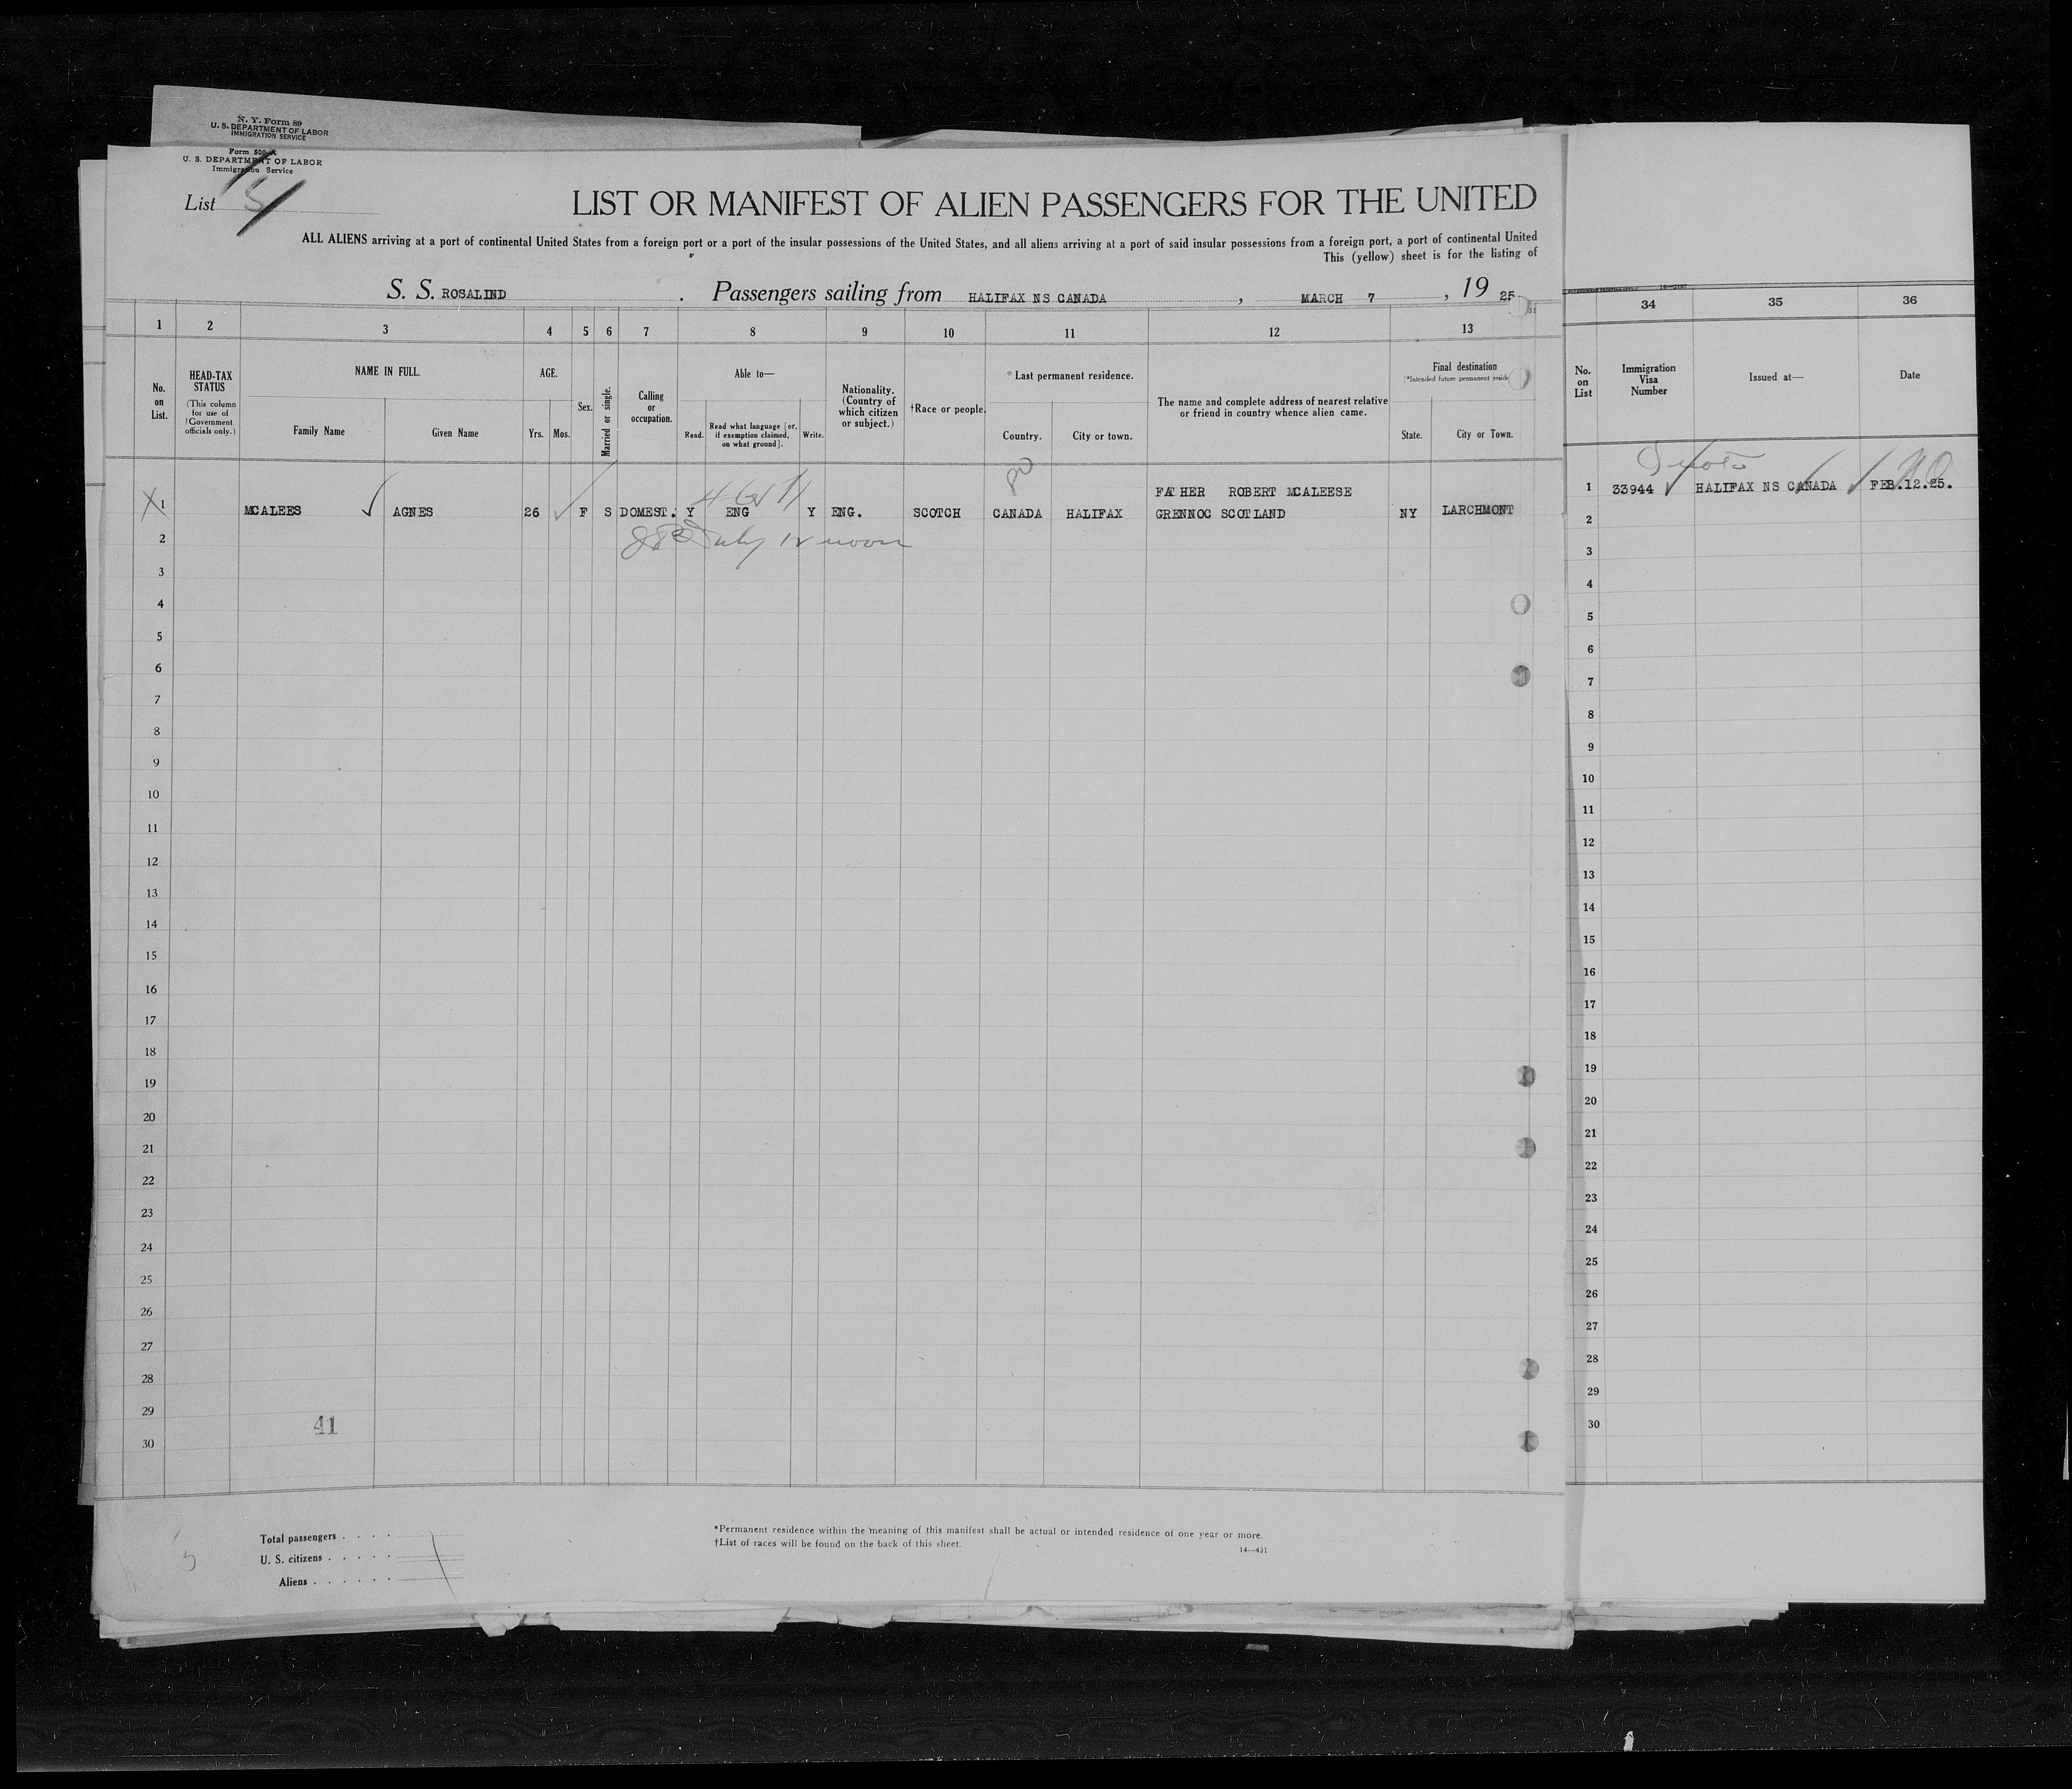 N. Y. Form 89
U. S. DEPARTMENT OF LABOR
IMMIGRATION SERVICE
Form 500 A
U. S. DEPARTMENT OF LABOR
Immigration Service
List
LIST OR MANIFEST OF ALIEN PASSENGERS FOR THE UNITED
ALL ALIENS arriving at a port of continental United States from a foreign port or a port of the insular possessions of the United States, and all aliens arriving at a port of said insular possessions from a foreign port, a port of continental United
This (yellow) sheet is for the listing of
S. S. ROSALIND . Passengers sailing from HALIFAX NS CANADA , MARCH 7 , 19 25
1 2 3 4 5 6 7 8 9 10 11 12 13 34 35 36
No. on List.
HEAD-TAX STATUS
(This column for use of Government officials only.)
NAME IN FULL.
Family Name
Given Name
AGE.
Yrs.
Mos.
Sex.
Married or single.
Calling or occupation.
Able to—
Read.
Read what language [or, if exemption claimed, on what ground].
Write.
Nationality. (Country of which citizen or subject.)
†Race or people.
*Last permanent residence.
Country.
City or town.
The name and complete address of nearest relative or friend in country whence alien came.
Final destination
(*Intended future permanent resid
State.
City or Town.
No. on List
Immigration Visa Number
Issued at—
Date
FATHER ROBERT MCALEESE
1 MCALEES AGNES 26 F S DOMEST. Y ENG Y ENG. SCOTCH CANADA HALIFAX GRENNOC SCOTLAND NY LARCHMONT
1 33944 HALIFAX NS CANADA FEB.12.25.
July 12 noon
2 2
3 3
4 4
5 5
6 6
7 7
8 8
9 9
10 10
11 11
12 12
13 13
14 14
15 15
16 16
17 17
18 18
19 19
20 20
21 21
22 22
23 23
24 24
25 25
26 26
27 27
28 28
29 29
41
30 30
Total passengers . . . .
U. S. citizens . . . . .
Aliens . . . . . .
*Permanent residence within the meaning of this manifest shall be actual or intended residence of one year or more.
†List of races will be found on the back of this sheet.
14—431